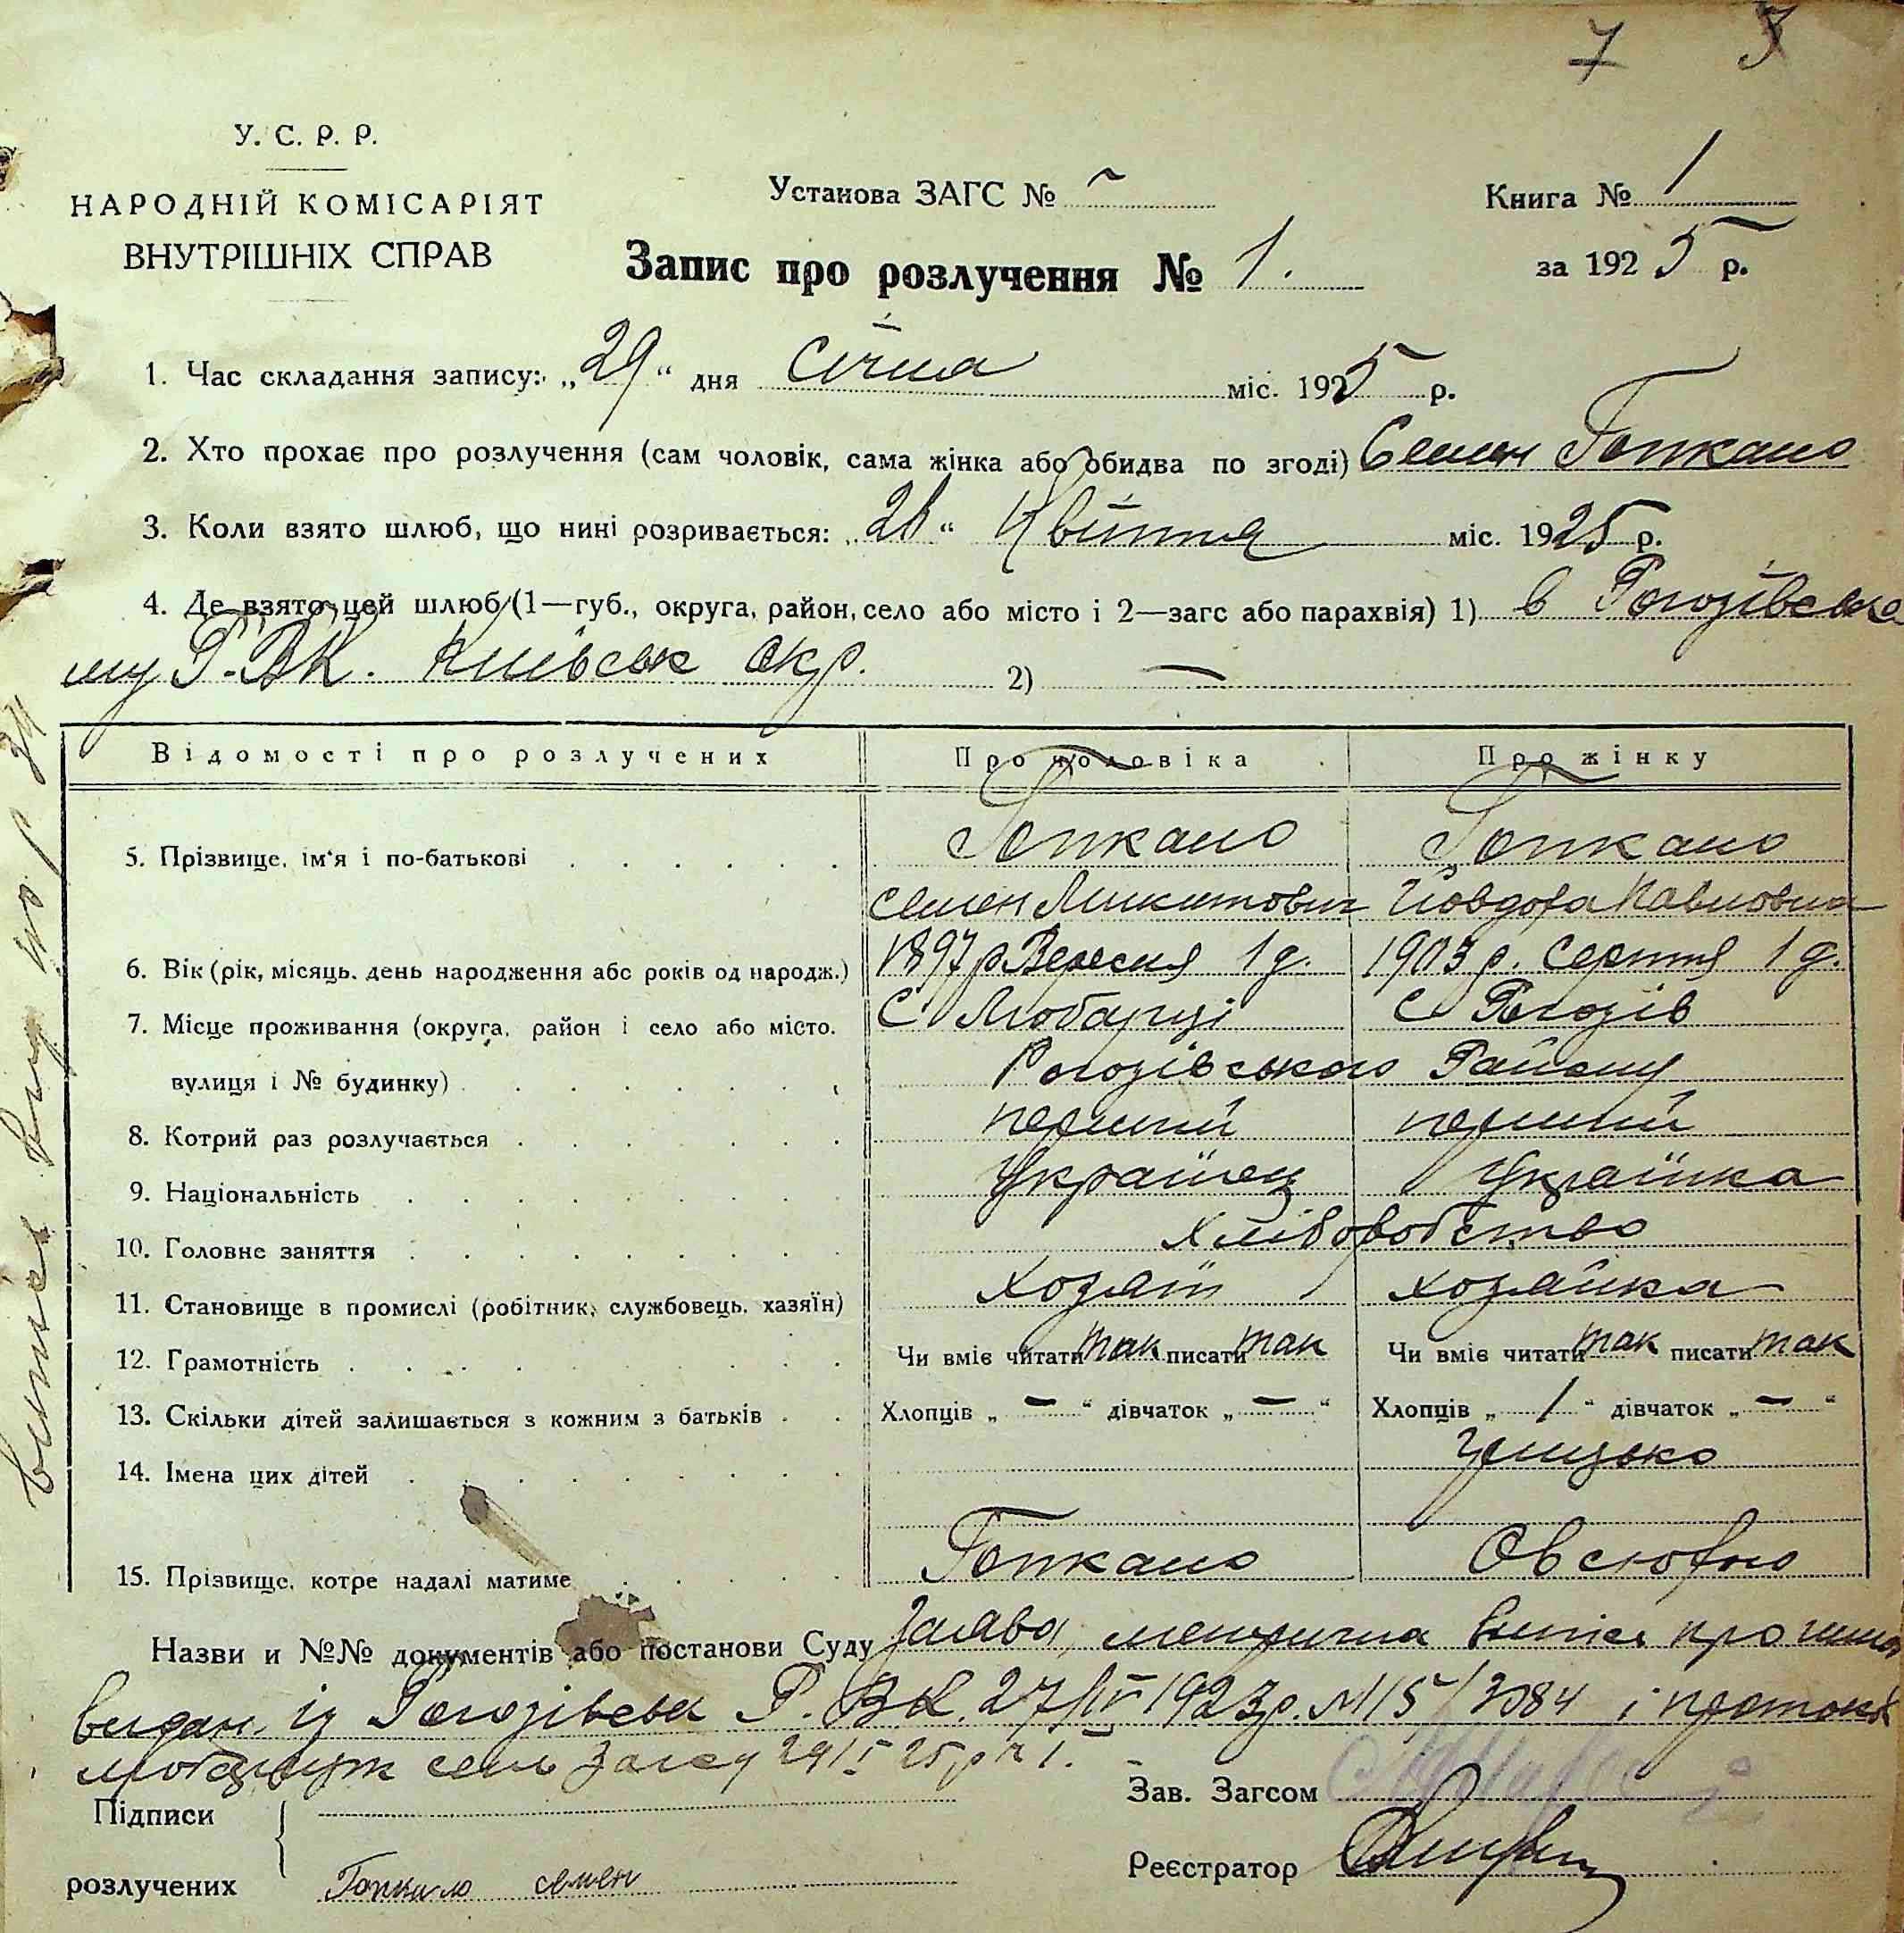 7
У. С. Р. Р.
НАРОДНІЙ КОМІСАРІЯТ
ВНУТРІШНІХ СПРАВ
Установа ЗАГС № –
Книга № 1
за 1925 р.
Запис про розлучення № 1.
1. Час складання запису: „29“ дня Січня міс. 1925 р.
2. Хто прохає про розлучення (сам чоловік, сама жінка або обидва по згоді) Семен Гопкало
3. Коли взято шлюб, що нині розривається: „28“ Квітня міс. 1925 р.
4. Де взято цей шлюб (1—губ., округа, район, село або місто і 2—загс або парахвія) 1) в Рогозівсько
му Р.В.К. Київськ окр. 2) —
Відомості про розлучених Про чоловіка Про жінку
5. Прізвище, ім‘я і по-батькові Гопкало Гопкало
Семен Микитович Йовдоха Павловна
6. Вік (рік, місяць, день народження або років од народж.) 1897 р Вересня 1 д. 1903 р. Серпня 1 д.
7. Місце проживання (округа, район і село або місто, С Любарці С Рогозів
вулиця і № будинку) Рогозівського Району
8. Котрий раз розлучається перший перший
9. Національність Українец Українка
10. Головне заняття Хліборобство
11. Становище в промислі (робітник, службовець, хазяїн) Хозяїн хозяйка
12. Грамотність Чи вміє читати так писати так Чи вміє читати так писати так
13. Скільки дітей залишається з кожним з батьків Хлопців „ – “ дівчаток „ – “ Хлопців „ 1 “ дівчаток „ – “
14. Імена цих дітей Грицько
15. Прізвище, котре надалі матиме Гопкало
Назви и №№ документів або постанови Суду Заява, метрична випіс про шлюб
видан. із Рогозівськ Р.В.К. 27/IV 1923р. №15/3084 і протокол
сель Загсу 29/I 25 р №1.
Зав. Загсом
Підписи
Реєстратор
розлучених Гопкало семен